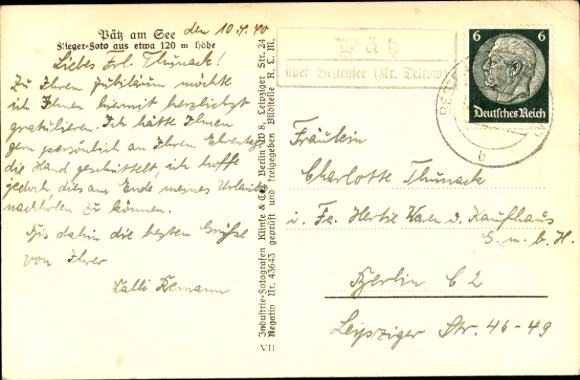 Pätz am See
Flieger-Foto aus etwa 120 m Höhe
den 10.7.40
Liebes Frl. Thunack!
Zu Ihrem Jubiläum möchte
ich Ihnen hiermit herzlichst
gratulieren. Ich hätte Ihnen
gern persönlich an Ihrem Ehrentag
die Hand geschüttelt, ich hoffe
jedoch dies am Ende meines Urlaubs
nachholen zu können.
Bis dahin die besten Grüße
von Ihrer
Walli
Industrie-Fotografen Klinke & Co. Berlin W 8, Leipziger Str. 24
Negativ Nr. 43643 geprüft und freigegeben Bildstelle R. L. M.
VII
Pätz
über Bestensee (Kr. Teltow)
6 6
Deutsches Reich
BEST
b
Fräulein
Charlotte Thunack
i. Fa. Hertie Waren u. Kaufhaus
G.m.b.H.
Berlin C 2
Leipziger Str. 46-49